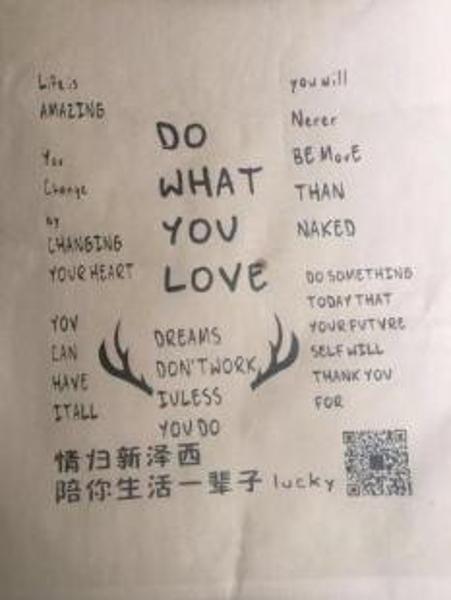 Life is
AMAZING
You
Change
by
CHANGING
YOUR HEART
YOU
CAN
HAVE
IT ALL
DO
WHAT
YOU
LOVE
DREAMS
DON'T WORK
IULESS
YOU DO
you will
Never
BE MorE
THAN
NAKED
DO SOMETHING
TODAY THAT
YOUR FUTVRE
SELF WILL
THANK YOU
FOR
情归新泽西
陪你生活一辈子 lucky